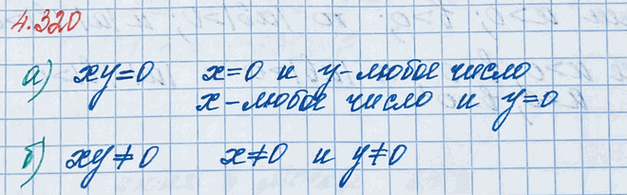 4.320
а) xy=0 x=0 и y-любое число
x-любое число и y=0
б) xy≠0 x≠0 и y≠0